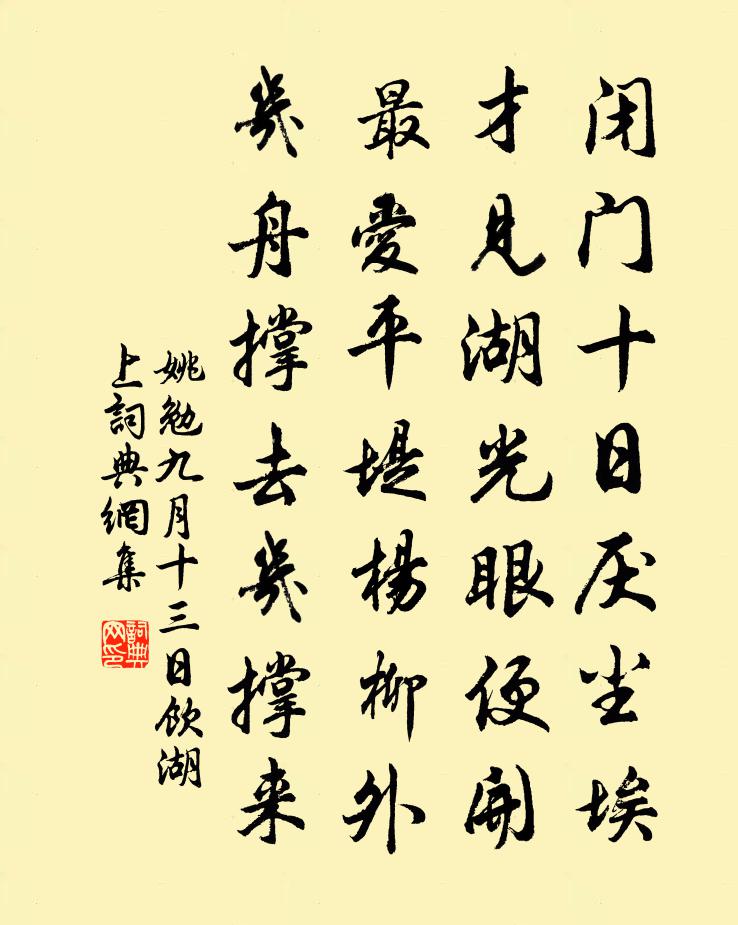 闭门十日厌尘埃
才见湖光眼便開
最愛平堤楊柳外
幾舟撑去幾撑来
姚勉九月十三日飲湖
上詞典網集
詞典
网印